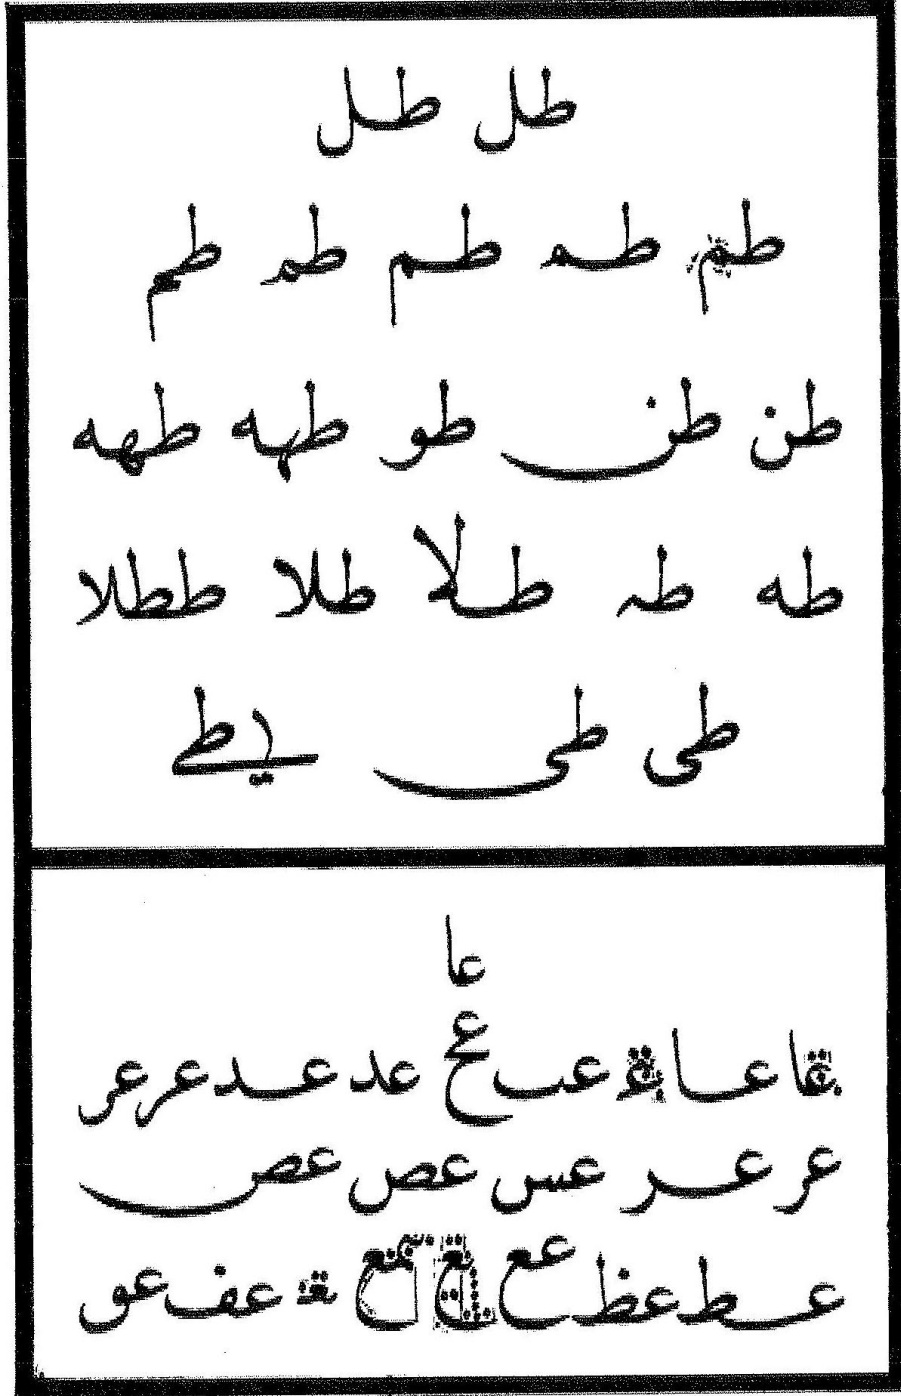 طل طل
طم طم طم طم طم
طن طن طو طهه طهه
طه طه طلا طلا ططلا
طى طى طے
عا
عا عا عب عح عد عد عر عر
عر عر عس عص عص
عط عظ عع عف عو